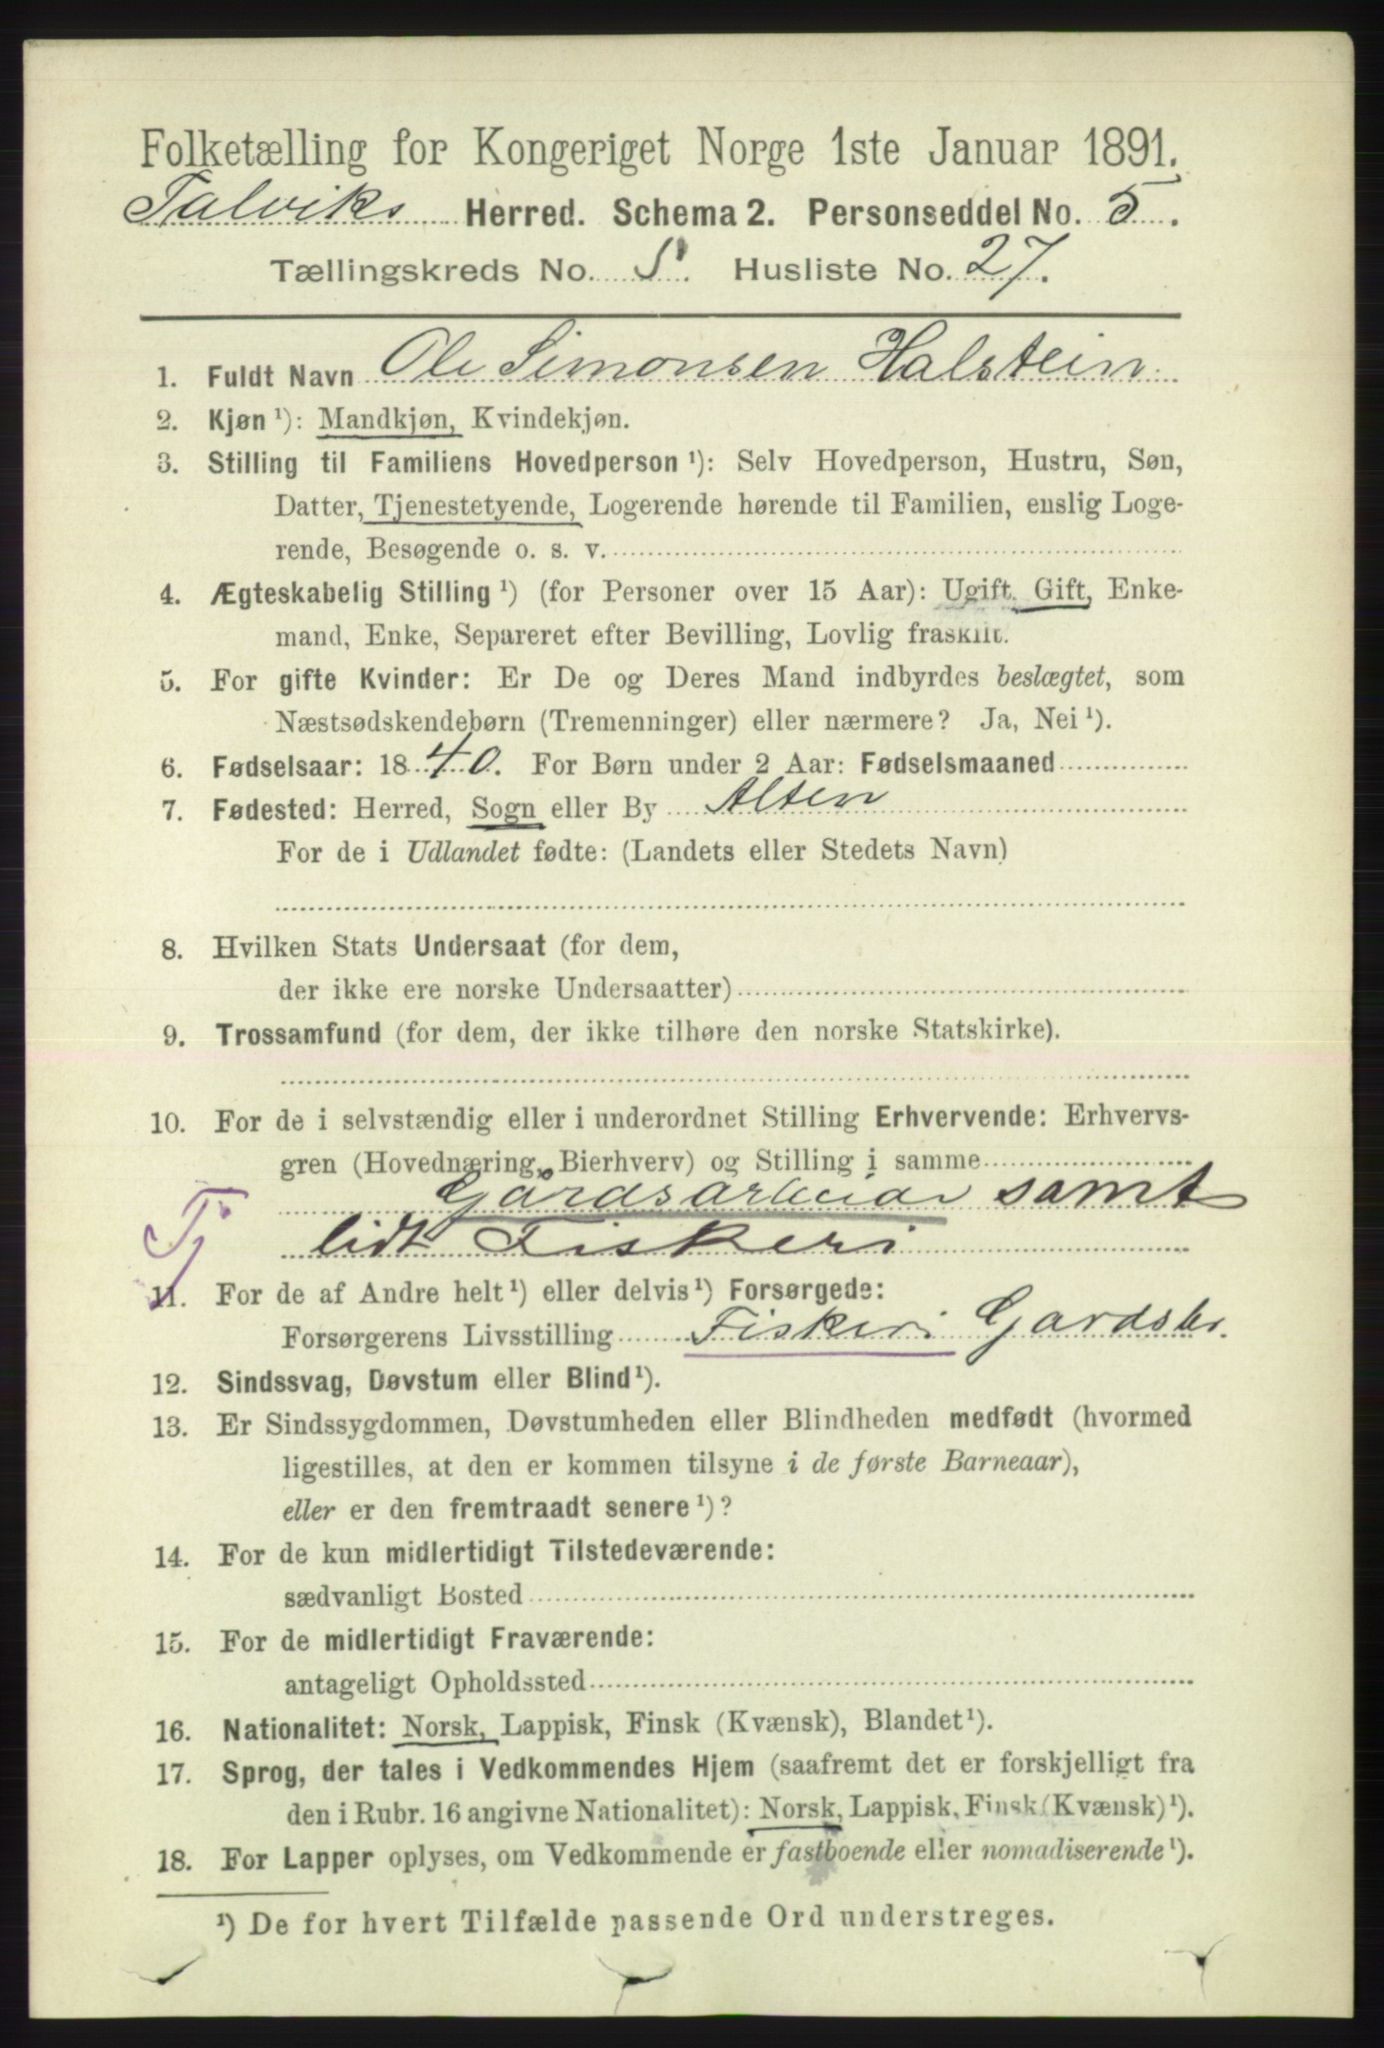 Folketælling for Kongeriget Norge 1ste Januar 1891.
Talviks Herred. Schema 2. Personseddel No. 5.
Tællingskreds No. 5. Husliste No. 27.
1. Fuldt Navn Ole Simonsen Halstein.
2. Kjøn ¹): Mandkjøn, Kvindekjøn.
3. Stilling til Familiens Hovedperson ¹): Selv Hovedperson, Hustru, Søn,
Datter, Tjenestetyende, Logerende hørende til Familien, enslig Loge-
rende, Besøgende o. s. v.
4. Ægteskabelig Stilling ¹) (for Personer over 15 Aar): Ugift, Gift, Enke-
mand, Enke, Separeret efter Bevilling, Lovlig fraskilt.
5. For gifte Kvinder: Er De og Deres Mand indbyrdes beslægtet, som
Næstsødskendebørn (Tremenninger) eller nærmere? Ja, Nei ¹).
6. Fødselsaar: 1840. For Børn under 2 Aar: Fødselsmaaned
7. Fødested: Herred, Sogn eller By Alten
For de i Udlandet fødte: (Landets eller Stedets Navn)
8. Hvilken Stats Undersaat (for dem,
der ikke ere norske Undersaatter)
9. Trossamfund (for dem, der ikke tilhøre den norske Statskirke).
10. For de i selvstændig eller i underordnet Stilling Erhvervende: Erhvervs-
gren (Hovednæring, Bierhverv) og Stilling i samme
Gårdsarbeider samt
Tj lidt Fiskeri
11. For de af Andre helt ¹) eller delvis ¹) Forsørgede:
Forsørgerens Livsstilling Fiskeri Gardsbr.
12. Sindssvag, Døvstum eller Blind ¹).
13. Er Sindssygdommen, Døvstumheden eller Blindheden medfødt (hvormed
ligestilles, at den er kommen tilsyne i de første Barneaar),
eller er den fremtraadt senere ¹)?
14. For de kun midlertidigt Tilstedeværende:
sædvanligt Bosted
15. For de midlertidigt Fraværende:
antageligt Opholdssted
16. Nationalitet: Norsk, Lappisk, Finsk (Kvænsk), Blandet ¹).
17. Sprog, der tales i Vedkommendes Hjem (saafremt det er forskjelligt fra
den i Rubr. 16 angivne Nationalitet): Norsk, Lappisk, Finsk (Kvænsk) ¹).
18. For Lapper oplyses, om Vedkommende er fastboende eller nomadiserende ¹).
¹) De for hvert Tilfælde passende Ord understreges.